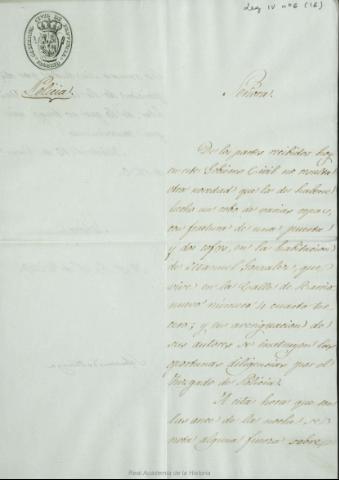 Leg IV nº 6 (16)
Policia.
Señora.
De los partes recibidos hoy
en este Gobierno Civil no resulta
otra novedad que la de haberse
hecho un robo de varias ropas,
con fractura de una puerta
y dos cofres, en la habitacion
de Manuel Gonzalez, que
vive en la Calle de
nuevo numero 4 cuarto ter-
cero; y en averiguacion de
sus autores se instruyen las
oportunas diligencias por el
Juzgado de Policia.
A esta hora que son
las once de la noche, se
nota alguna fuerza sobre
Real Academia de la Historia